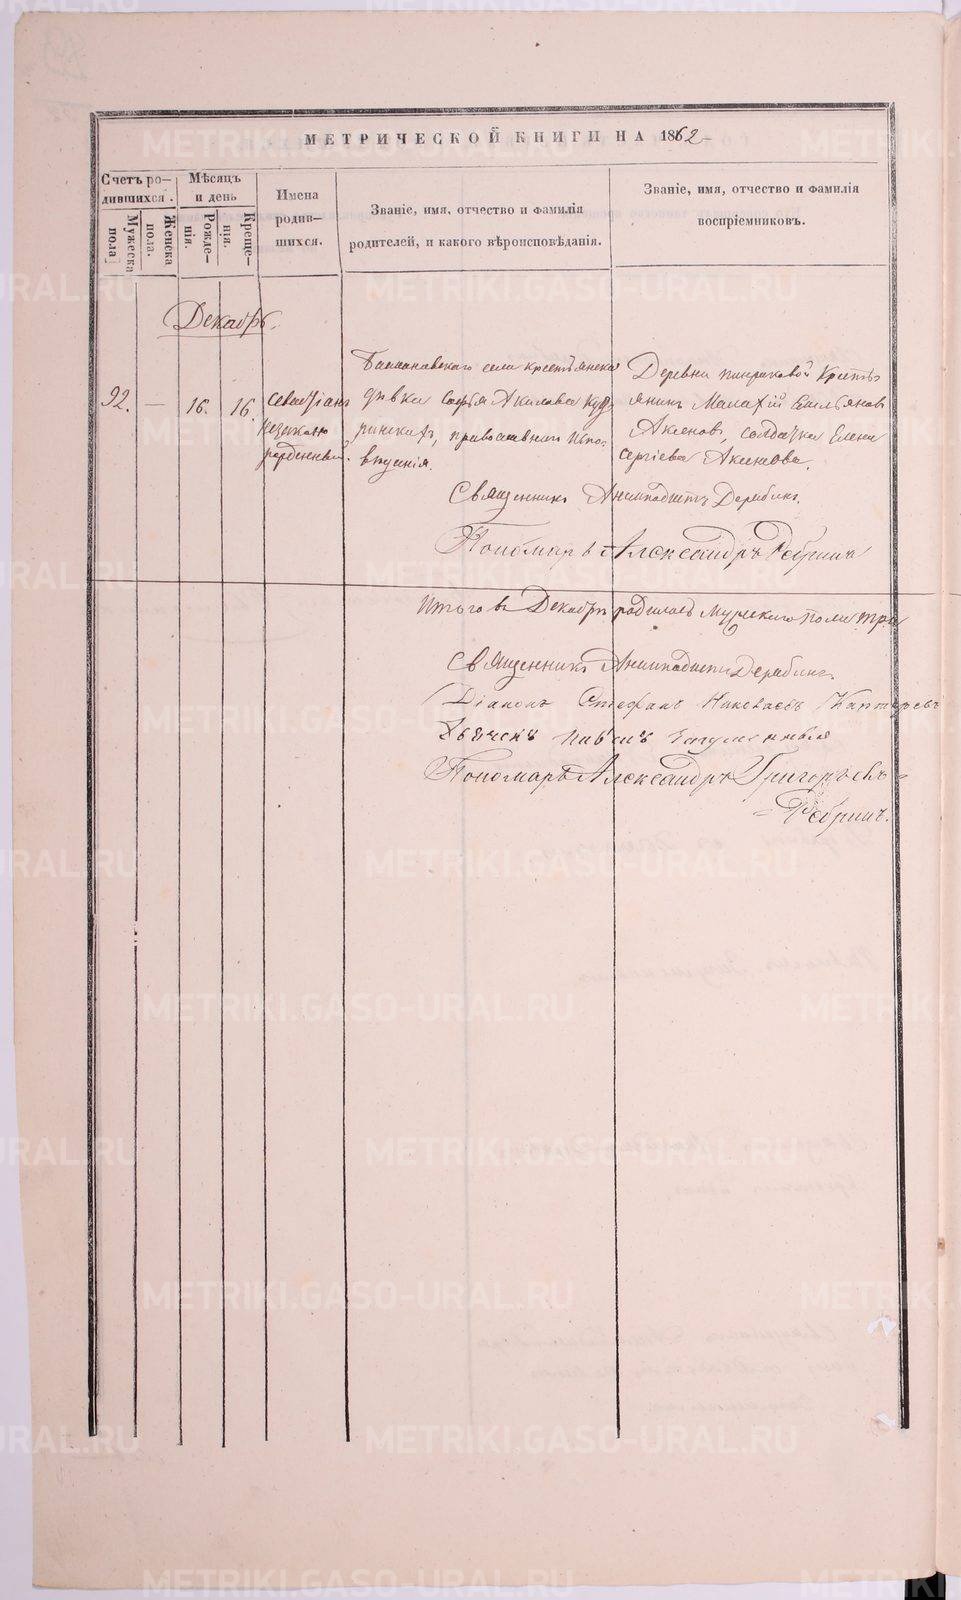 МЕТРИЧЕСКОЙ КНИГИ НА 1862
Счетъ ро-
дившихся.
Мужеска
пола
Женска
пола.
Мѣсяцъ
и день
Рожде-
нія.
Креще-
нія.
Имена
родив-
шихся.
Званіе, имя, отчество и фамилія
родителей, и какого вѣроисповѣданія.
Званіе, имя, отчество и фамилія
воспріемниковъ.
Декабрь.
92. — 16. 16. Севастіанъ
незаконно
рожденный.
села крестьянская
дѣвка Софья Акилова
православнаго испо-
вѣданія.
Деревни Кресть-
янинъ Малахій Емельяновъ
Аксеновъ, солдатка Елена
Сергіева Аксенова.
Священникъ Дерябинъ.
Пономарь Александръ Ребринъ
Итого въ Декабрѣ родилось Мужескаго пола три
Священникъ Дерябинъ
Діаконъ Стефанъ Николаевъ Каптеревъ
Дьячекъ Павелъ
Пономарь Александръ Григорьевъ
Ребринъ.
METRIKI.GASO-URAL.RU